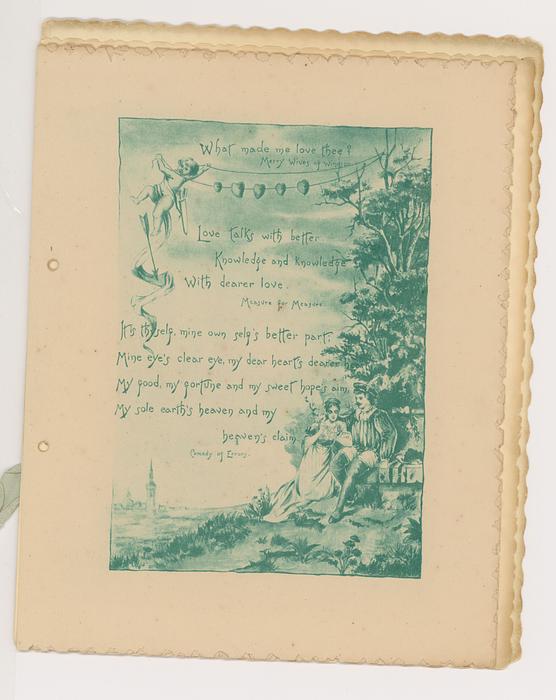 What made me love thee?
Merry Wives of Windsor
Love talks with better
Knowledge and knowledge
With dearer love.
Measure for Measure.
It is thyself, mine own self's better part;
Mine eye's clear eye, my dear heart's dearer
My food, my fortune and my sweet hope's aim,
My sole earth's heaven and my
heaven's claim
Comedy of Errors.